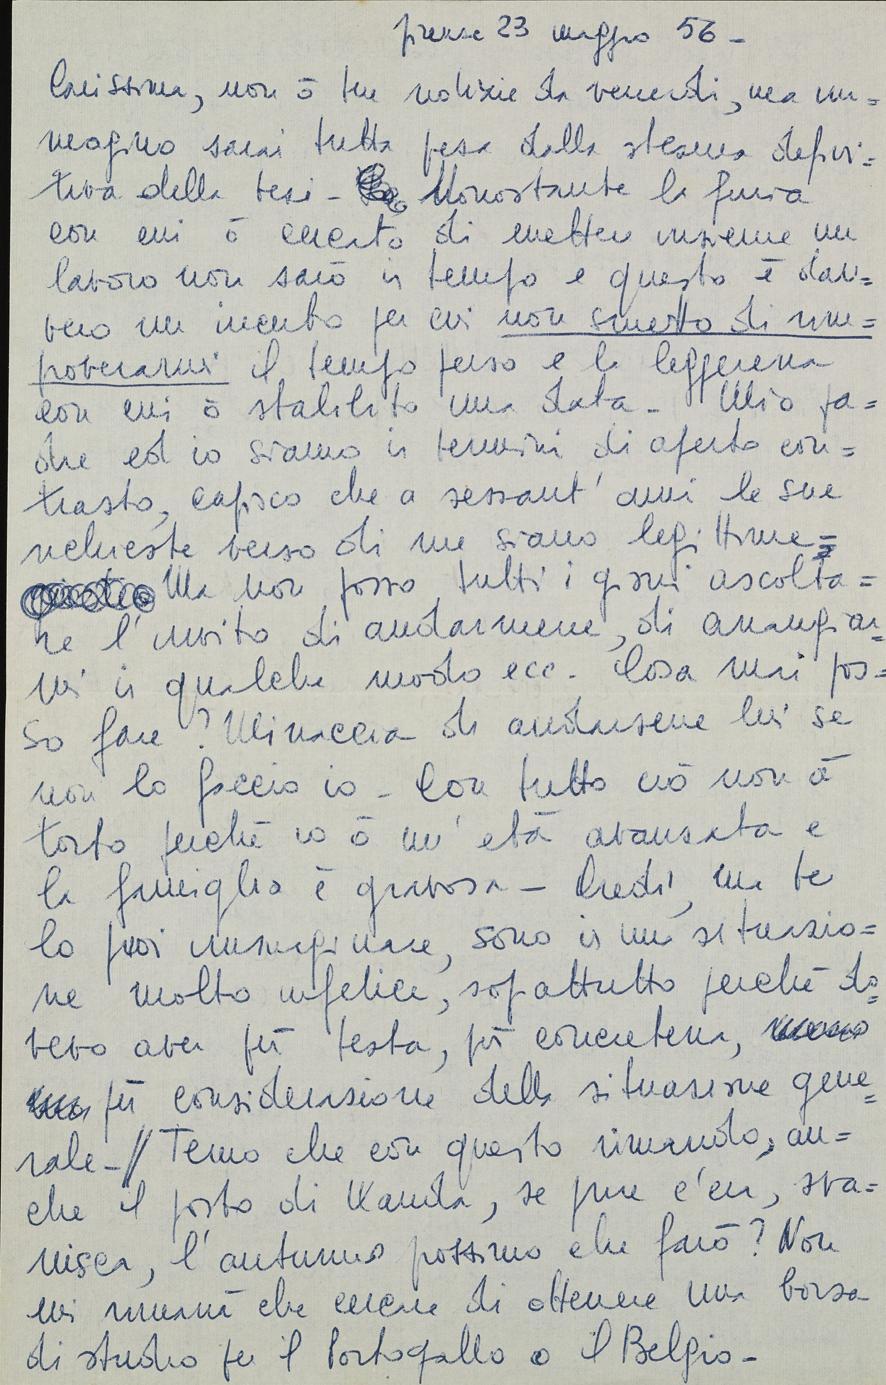 Firenze 23 maggio 56 -
Carissima, non ō tue notizie da venerdì, ma im=
magino sarai tutta presa dalla stesura defini=
tiva della tesi - Nonostante la furia
con cui ō cercato di mettere insieme un
lavoro non sarō in tempo e questo ē dav=
vero un incubo per cui non smetto di rim=
proverarmi il tempo perso e la leggerezza
con cui ō stabilito una data - Mio pa=
dre ed io siamo in termini di aperto con=
trasto, capisco che a sessant'anni le sue
richieste verso di me siano legittime=
Ma non posso tutti i giorni ascolta=
re l'invito di andarmene, di arrangiar=
mi in qualche modo ecc. Cosa mai pos=
so fare? Minaccia di andarsene lui se
non lo faccio io - Con tutto ciō non ā
torto perchē io ō un'etā avanzata e
la famiglia ē gravosa - Credi, ma te
lo puoi immaginare, sono in una situazio=
ne molto infelice, soprattutto perchē do=
vevo aver piū testa, piū concretezza,
piū considerazione della situazione gene=
rale -// Temo che con questo rimando, an=
che il posto di Wanda, se pure c'era, sva=
nisca, l'autunno prossimo che farō? Non
mi rimarrā che cercare di ottenere una borsa
di studio per il Portogallo o il Belgio -